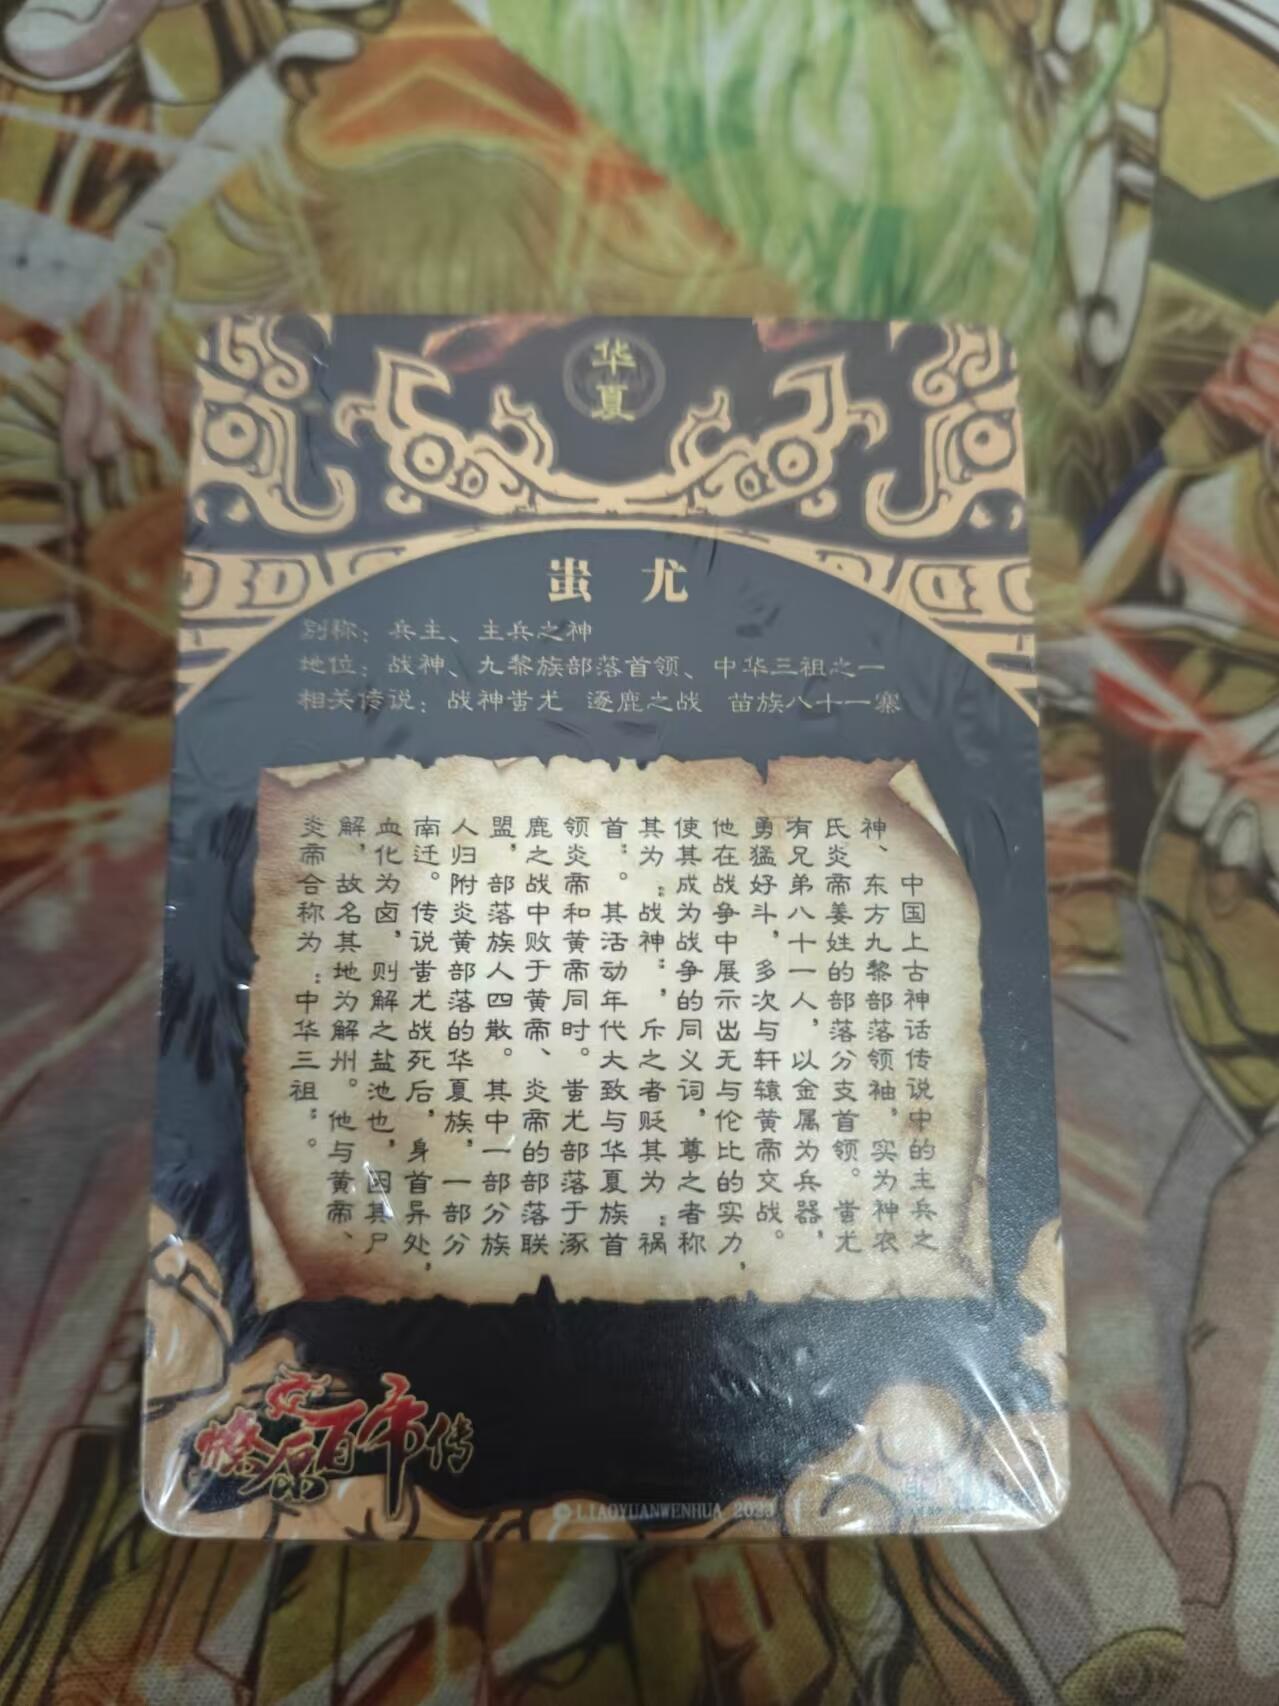 华
夏
蚩尤
别称：兵主、主兵之神
地位：战神、九黎族部落首领、中华三祖之一
相关传说：战神蚩尤 逐鹿之战 苗族八十一寨
中国上古神话传说中的主兵之
神、东方九黎部落领袖，实为神农
氏炎帝姜姓的部落分支首领。蚩尤
有兄弟八十一人，以金属为兵器，
勇猛好斗，多次与轩辕黄帝交战。
他在战争中展示出无与伦比的实力，
使其成为战争的同义词，尊之者称
其为“战神”，斥之者贬其为“祸
首”。其活动年代大致与华夏族首
领炎帝和黄帝同时。蚩尤部落于涿
鹿之战中败于黄帝、炎帝的部落联
盟，部落族人四散。其中一部分族
人归附炎黄部落的华夏族，一部分
南迁。传说蚩尤战死后，身首异处，
血化为卤，则解之盐池也，因其尸
解，故名其地为解州。他与黄帝、
炎帝合称为“中华三祖”。
燎原百帝传
© LIAOYUANWENHUA 2023